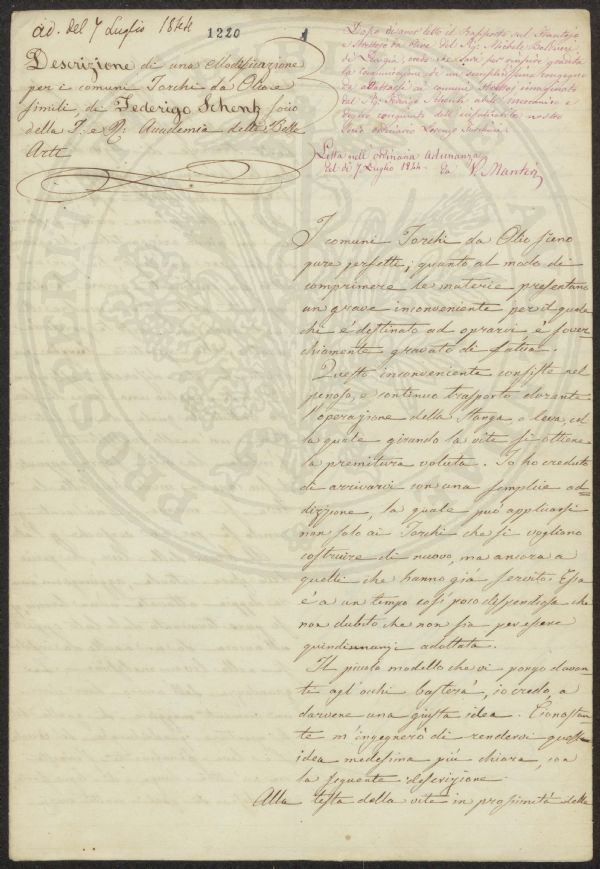 ad. del 7 Luglio 1844
1220
1
Descrizione di una Modificazione
per i comuni Torchi da Olio e
simili, di Federigo Schenk socio
della I. e R. Accademia delle Belle
Arti
Dopo di aver letto il Rapporto sul
e del Sig. Michele
di
la comunicazione di un semplicissimo congegno
da adattarsi ai comuni immaginato
dal Sig. abile meccanico e
nostro
Socio ordinario Lorenzo
Letta nell' ordinaria adunanza
del dì 7 Luglio 1844. da
I comuni Torchi da Olio sieno
pure perfetti, quanto al modo di
comprimere le materie presentano
un grave inconveniente per il quale
chi è destinato ad oprarvi è sover-
chiamente gravato di fatica.
Questo inconveniente consiste nel
penoso, e continuo trasporto durante
l'operazione della Stanga o leva, col
la quale girando la vite si ottiene
la premitura voluta. Io ho creduto
di arrivarvi con una semplice ad-
dizione, la quale può applicarsi
non solo ai Torchi che si vogliono
costruire di nuovo, ma ancora a
quelli che hanno già servito. Essa
è a un tempo così poco dispendiosa che
non dubito che non sia per essere
quindinnanzi adottata.
Il piccolo modello che vi pongo davan-
te agl'occhi basterà, io credo, a
darvene una giusta idea. Ciònostan-
te m'ingegnerò di rendervi questa
idea medesima più chiara, con
la seguente descrizione.
Alla testa della vite in prossimità delle